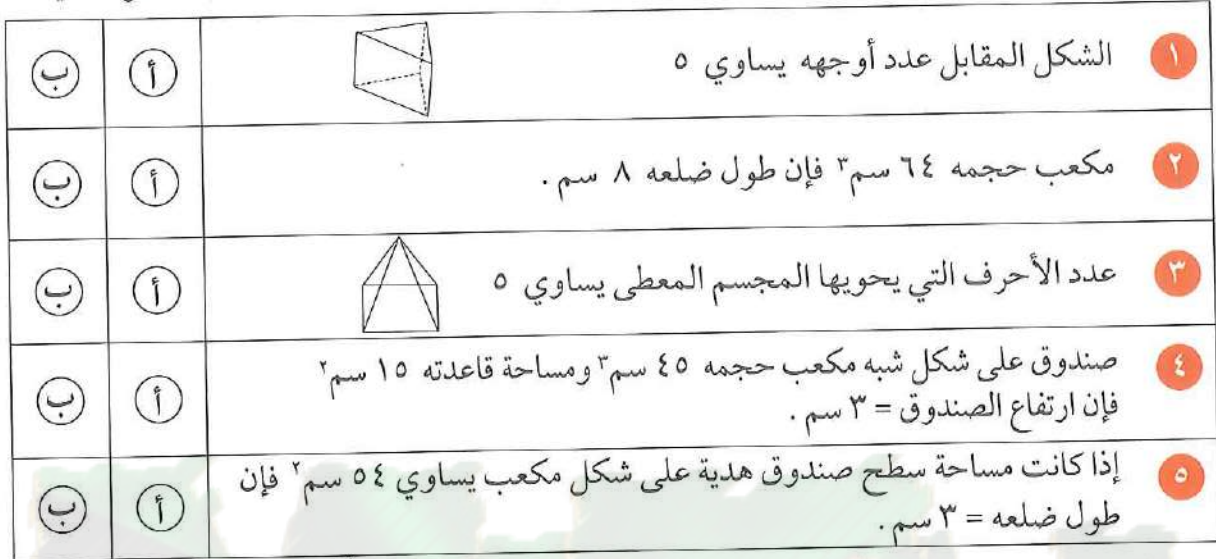 ١ الشكل المقابل عدد أوجهه يساوي ٥ أ ب
٢ مكعب حجمه ٦٤ سم٣ فإن طول ضلعه ٨ سم . أ ب
٣ عدد الأحرف التي يحويها المجسم المعطى يساوي ٥ أ ب
٤ صندوق على شكل شبه مكعب حجمه ٤٥ سم٣ ومساحة قاعدته ١٥ سم٢ أ ب
فإن ارتفاع الصندوق = ٣ سم .
٥ إذا كانت مساحة سطح صندوق هدية على شكل مكعب يساوي ٥٤ سم٢ فإن أ ب
طول ضلعه = ٣ سم .